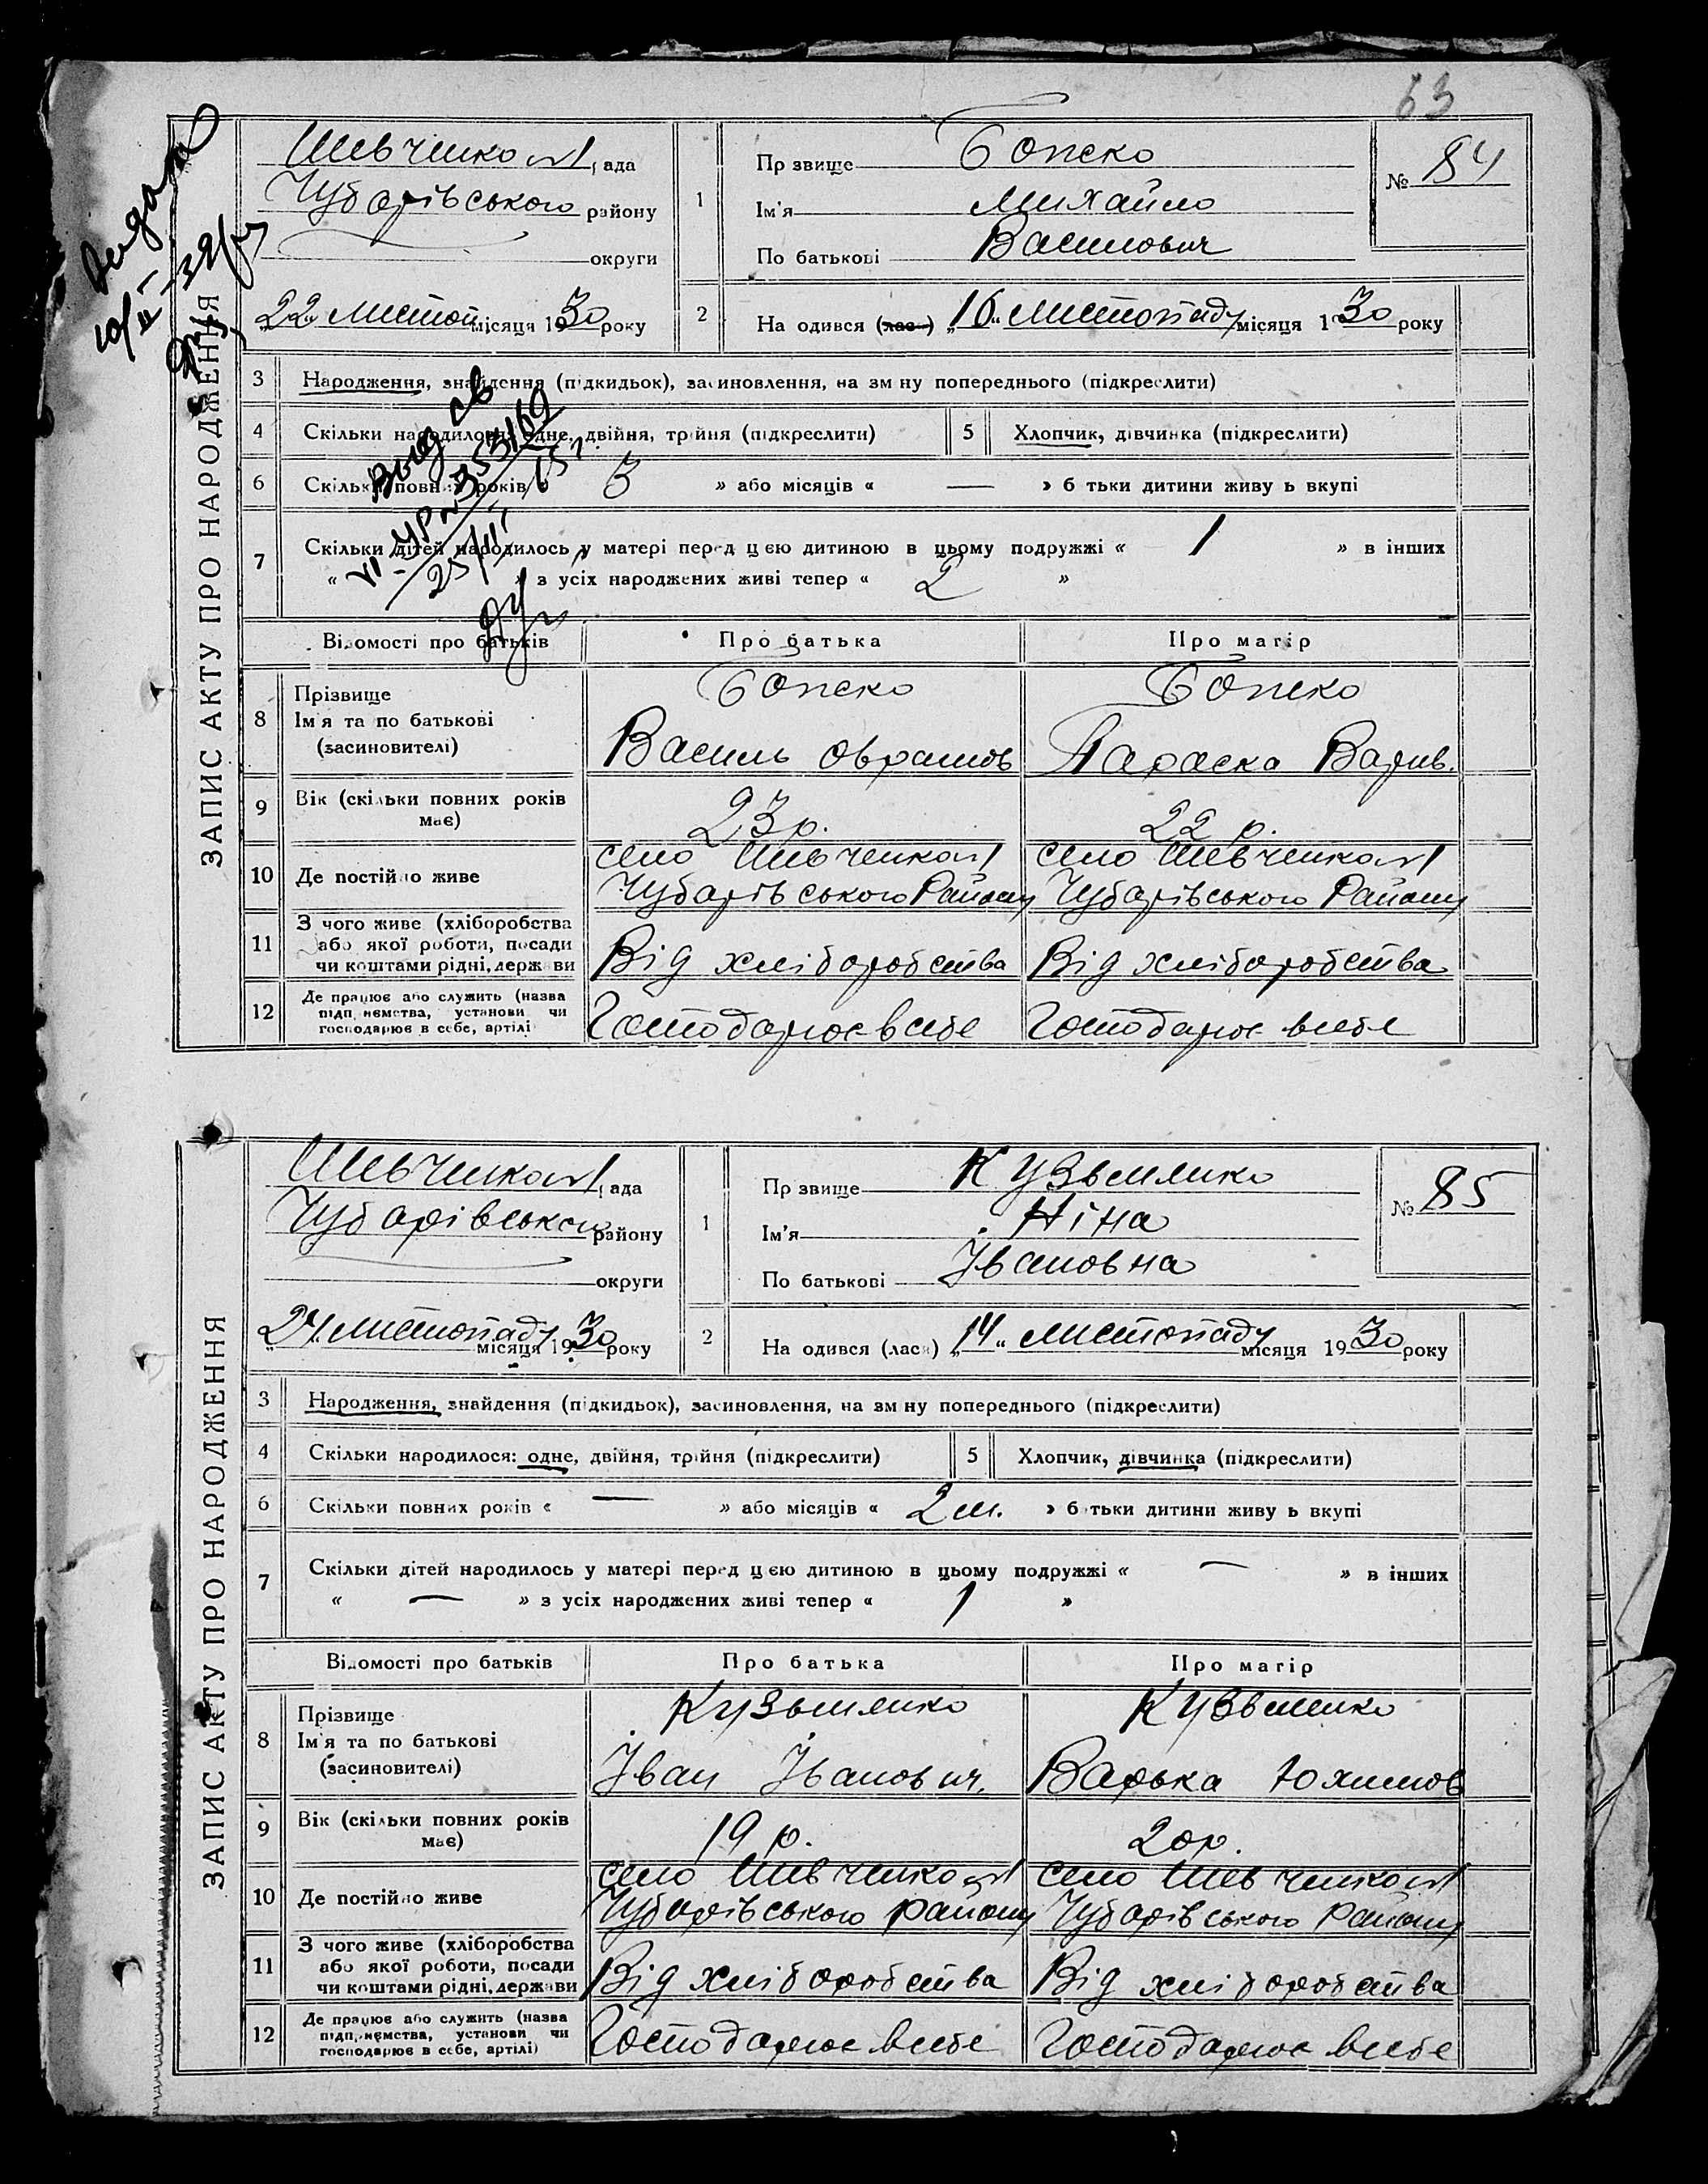 63
Шевченко
рада
Чубарівського району
округи
22 Листоп. місяця 1930 року
1
Прізвище Бопско
Ім'я Михайло
По батькові Василович
№ 84
2
На одився (лась) „16“ Листопаду місяця 1930 року
ЗАПИС АКТУ ПРО НАРОДЖЕННЯ
3 Народження, знайдення (підкидьок), засиновлення, на зм ну попереднього (підкреслити)
4 Скільки народилося: одне, двійня, трійня (підкреслити) 5 Хлопчик, дівчинка (підкреслити)
6 Скільки повних років « 3 » або місяців « — » б тьки дитини живу ь вкупі
7 Скільки дітей народилось у матері перед цією дитиною в цьому подружжі « 1 » в інших
« » з усіх народжених живі тепер « 2 »
Відомості про батьків Про батька Про матір
8 Прізвище
Ім'я та по батькові
(засиновителі)
Бопско Бопско
Василь Оврамов Параска Варив.
9 Вік (скільки повних років
має)
23 р. 22 р.
10 Де постійно живе
село Шевченко село Шевченко
Чубарівського Району Чубарівського Району
11 З чого живе (хліборобства
або якої роботи, посади
чи коштами рідні, держави
Від хліборобства Від хліборобства
12 Де працює або служить (назва
підприємства, установи чи
господарює в себе, артілі
Господарює в себе Господарює в себе
Шевченко
рада
Чубарівського району
округи
24 листопаду місяця 1930 року
1
Прізвище Кузьменко
Ім'я Ніна
По батькові Івановна
№ 85
2
На одився (лася) „14“ листопаду місяця 1930 року
ЗАПИС АКТУ ПРО НАРОДЖЕННЯ
3 Народження, знайдення (підкидьок), засиновлення, на зм ну попереднього (підкреслити)
4 Скільки народилося: одне, двійня, трійня (підкреслити) 5 Хлопчик, дівчинка (підкреслити)
6 Скільки повних років « — » або місяців « 2 м. » б тьки дитини живу ь вкупі
7 Скільки дітей народилось у матері перед цією дитиною в цьому подружжі « — » в інших
« — » з усіх народжених живі тепер « 1 »
Відомості про батьків Про батька Про матір
8 Прізвище
Ім'я та по батькові
(засиновителі)
Кузьменко Кузьменко
Іван Іванович. Варька Юхимов
9 Вік (скільки повних років
має)
19 р. 20 р.
10 Де постійно живе
село Шевченко село Шевченко
Чубарівського району Чубарівського Району
11 З чого живе (хліборобства
або якої роботи, посади
чи коштами рідні, держави
Від хліборобства Від хліборобства
12 Де працює або служить (назва
підприємства, установи чи
господарює в себе, артілі)
Господарює в себе Господарює в себе